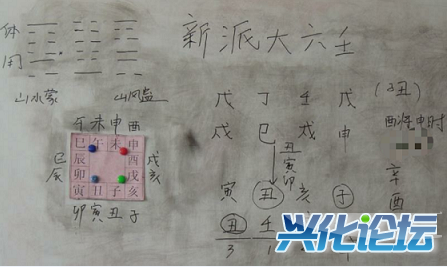 新派大六壬
体
用
山水蒙
午未申酉
巳午未申
巳辰 酉戌
辰卯 戌亥
寅丑子亥
卯寅丑子
戊丁壬戊
(丑)
戌巳戌申
酉将申时
丑
寅
卯
寅丑亥子
辛
酉
丑
3 1
兴化论坛